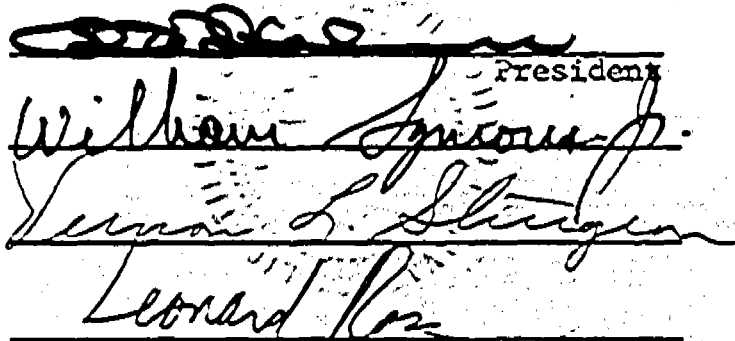 President
William Symons Jr.
Vernon L. Sturgeon
Leonard Ross